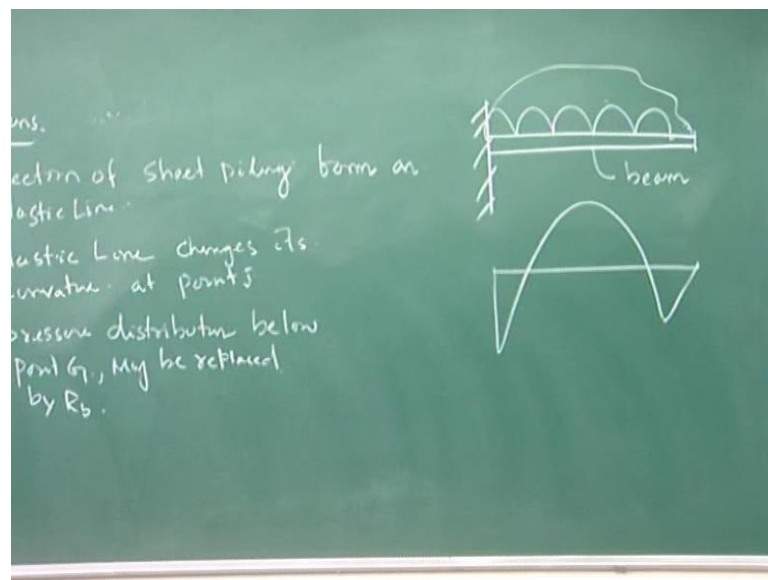 ns.
ection of sheet piling form an
lastic Line.
lastic Line changes its
curvature at points
pressure distribution below
point G, May be replaced
by Rb.
beam